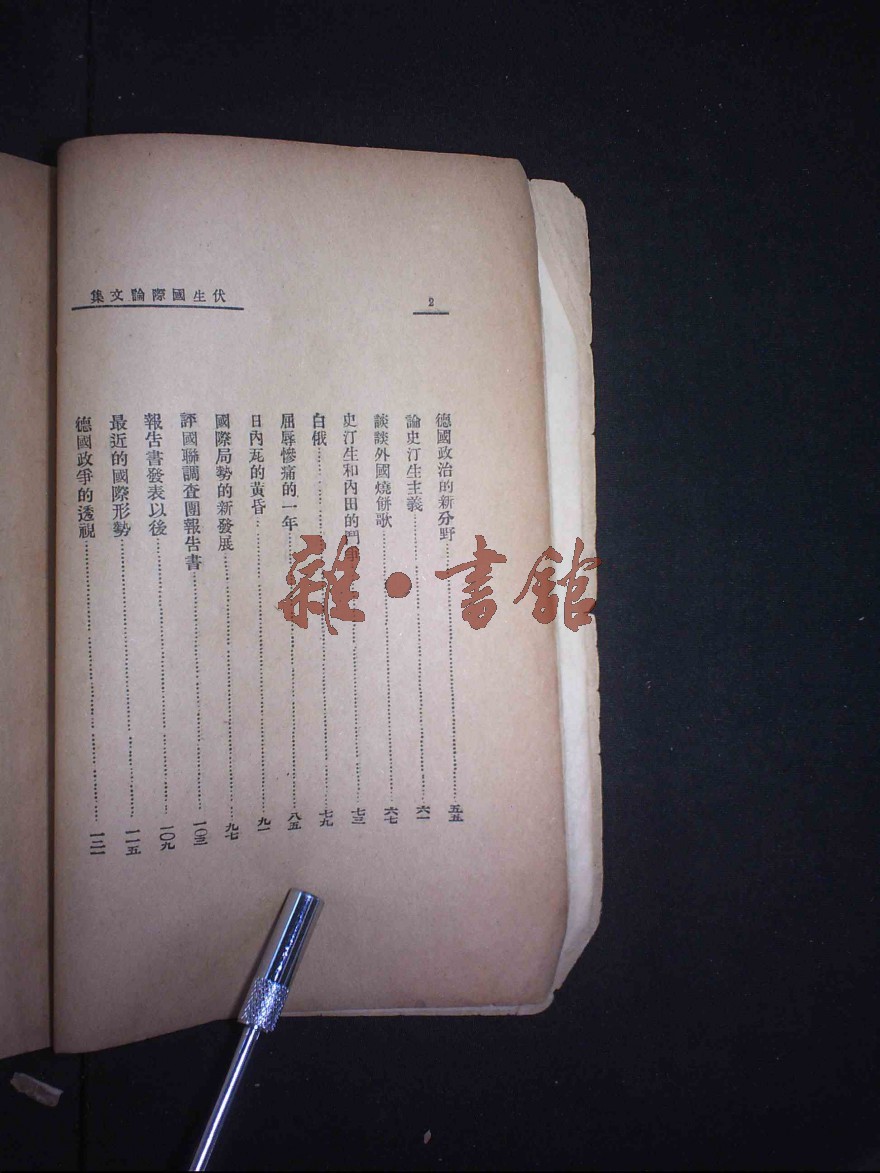 伏生國際論文集
2
德國政治的新分野……五五
論史汀生主義……六一
談談外國燒餅歌……六七
史汀生和內田的鬥爭……七三
白俄……七九
屈辱慘痛的一年……八五
日內瓦的黃昏……九一
國際局勢的新發展……九七
評國聯調查團報告書……一〇三
報告書發表以後……一〇九
最近的國際形勢……一一五
德國政爭的透視……一二一
雜·書館